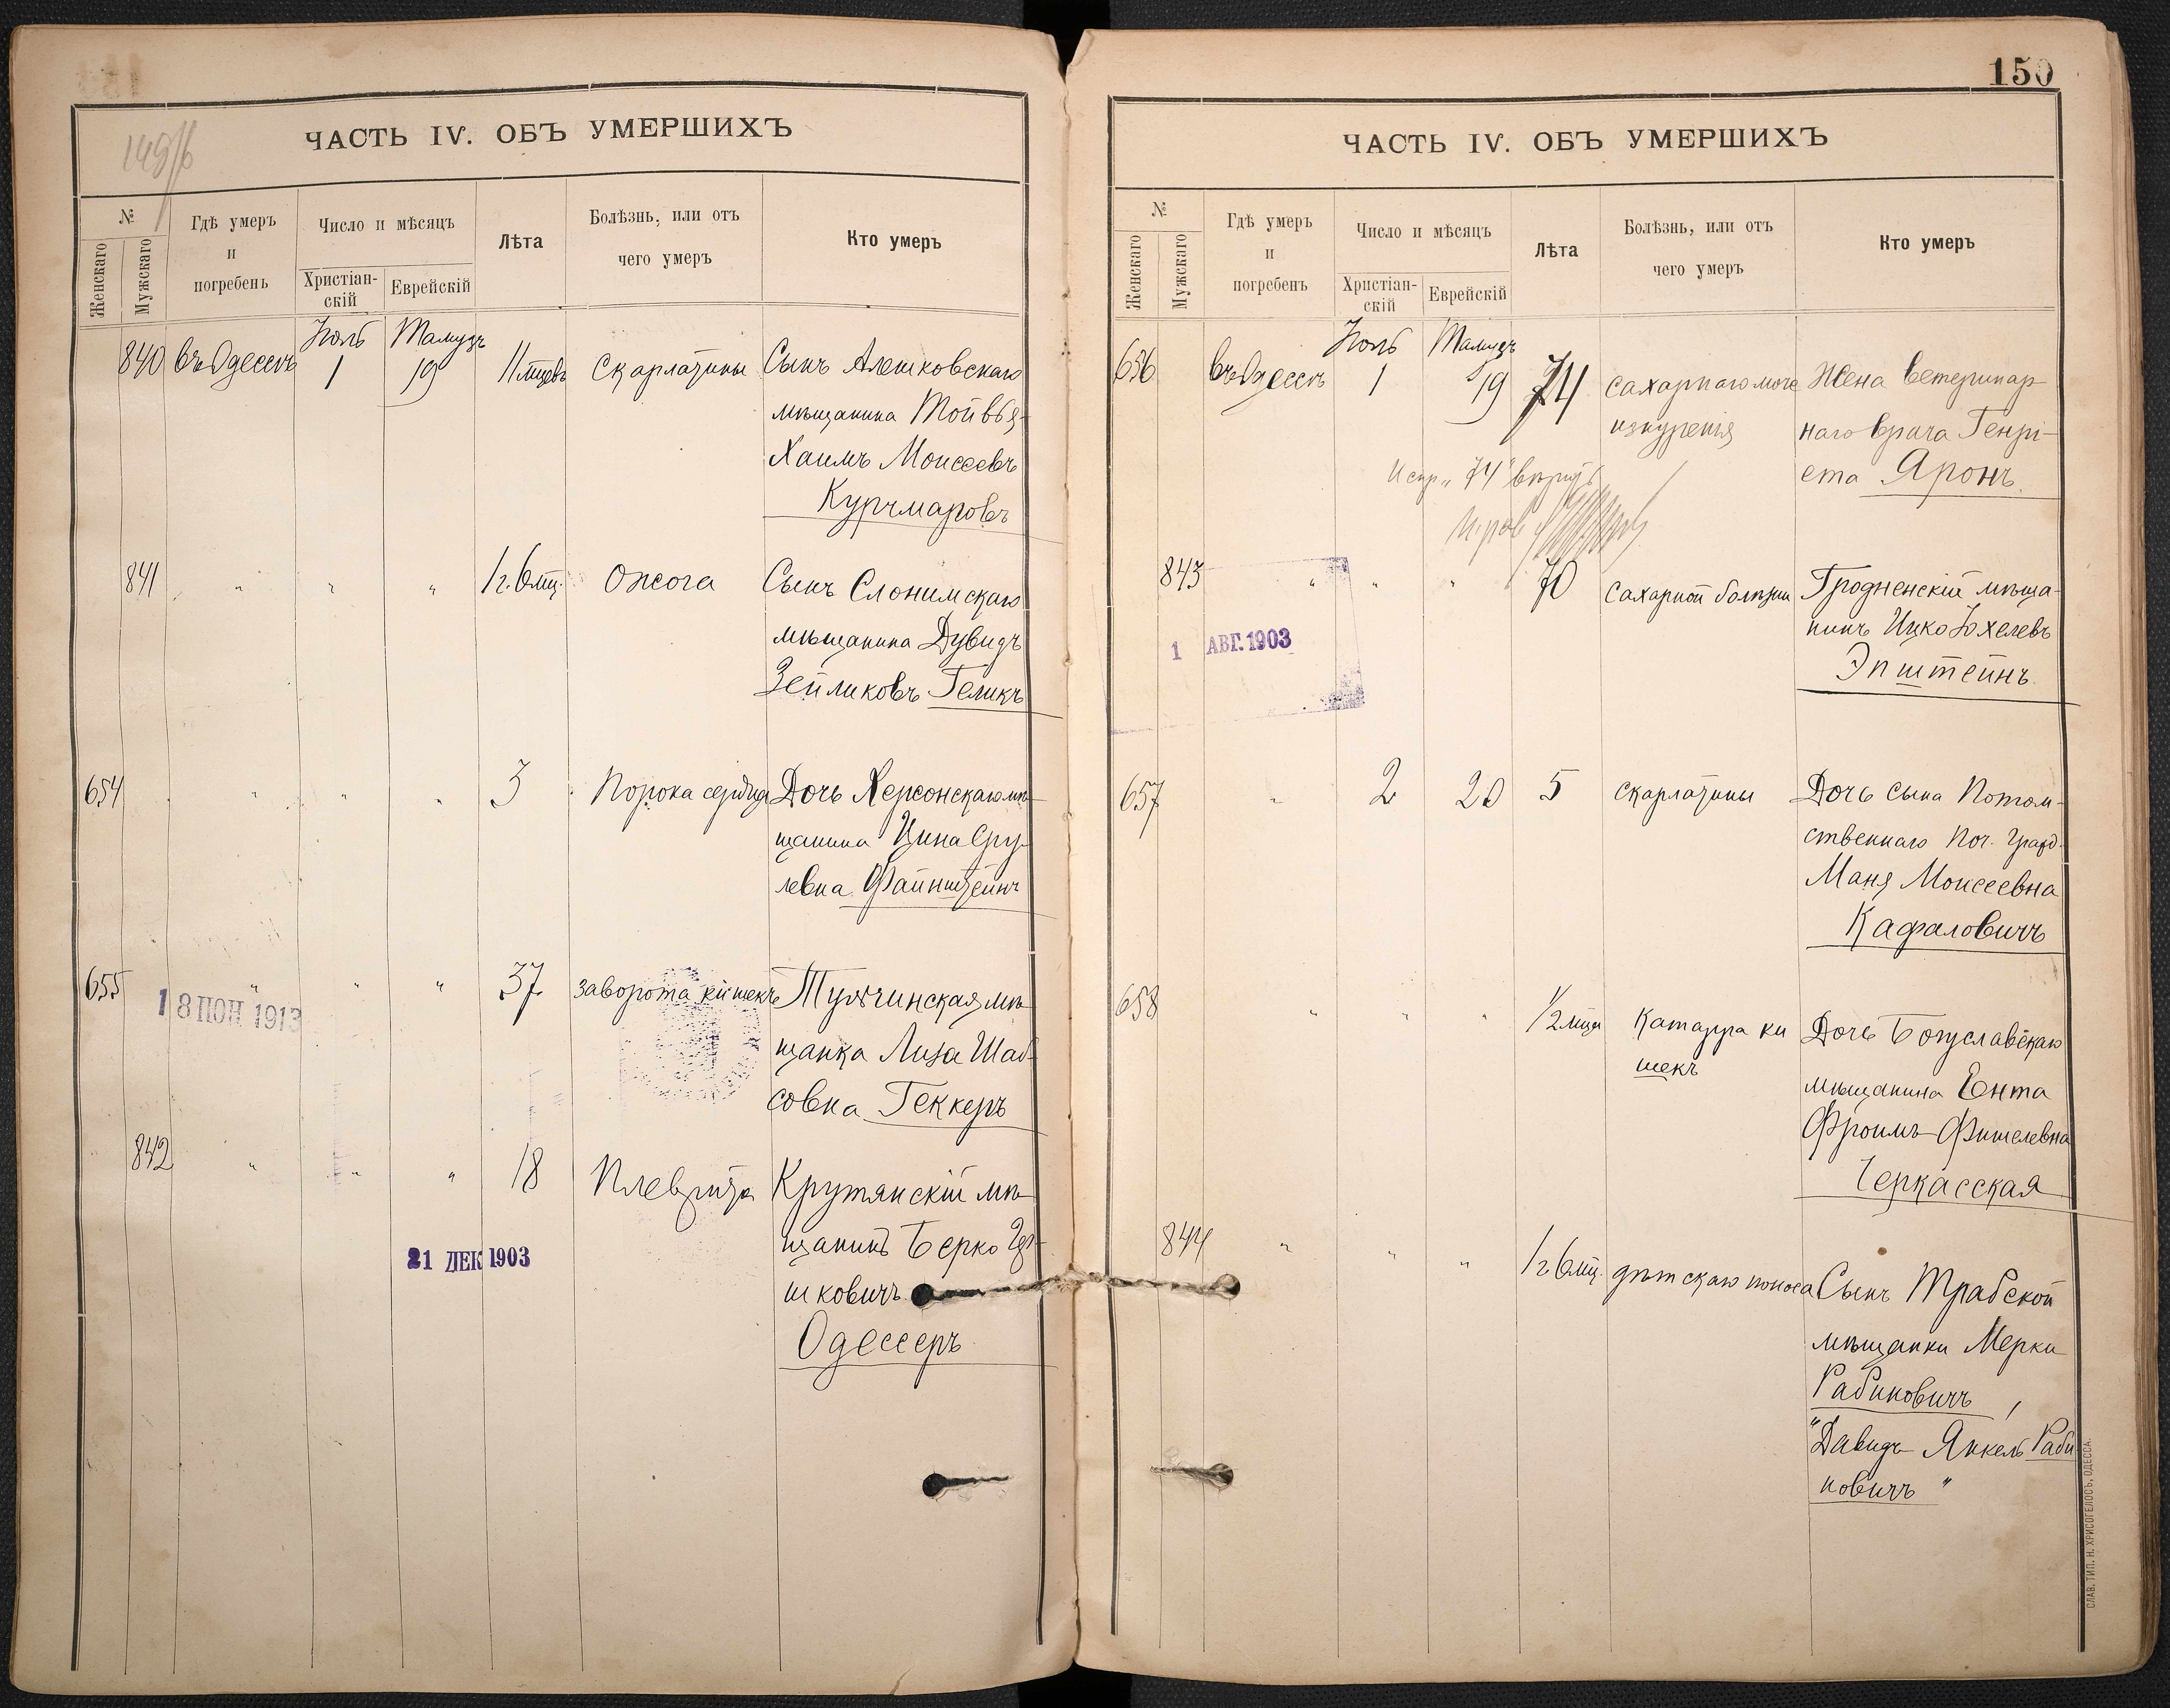 149/б
ЧАСТЬ IV. ОБЪ УМЕРШИХЪ
№
Женскаго
Мужскаго
Гдѣ умеръ
и
погребенъ
Число и мѣсяцъ
Христіан-
скій
Еврейскій
Лѣта
Болѣзнь, или отъ
чего умеръ
Кто умеръ
Іюль Тамузъ
840 въ Одессѣ 1 19 11 мцевъ Скарлатины Сынъ Алешковскаго
мѣщанина Тойвья-
Хаимъ Моисеевъ
Курчмаровъ
841 " " " 1 г. 6 мц. Ожога Сынъ Слонимскаго
мѣщанина Дувидъ
Зейликовъ Геликъ
654 " " " 3 Порока сердца Дочь Херсонскаго мѣ-
щанина Цина Сру-
левна Файнштейнъ
655 " " " 37 заворота кишекъ Тульчинская мѣ-
щанка Лиза Шаб-
совна Геккеръ
18 ИЮН 1913
842 " " " 18 Плеврита Крутянскій мѣ-
щанинъ Берко
шковичъ
Одессеръ
21 ДЕК 1903
150
ЧАСТЬ IV. ОБЪ УМЕРШИХЪ
№
Женскаго
Мужскаго
Гдѣ умеръ
и
погребенъ
Число и мѣсяцъ
Христіан-
скій
Еврейскій
Лѣта
Болѣзнь, или отъ
чего умеръ
Кто умеръ
Іюль Тамузъ
656 въ Одессѣ 1 19 74 сахарнаго моче Жена ветеринар-
изнуренія наго врача Генрі-
ета Яронъ
Испр. "74" вѣрить
843 " " " 70 Сахарной болѣзни Гродненскій мѣща-
нинъ Ицко Іохелевъ
Эпштейнъ
1 АВГ. 1903
657 " 2 20 5 скарлатины Дочь сына Потом-
ственнаго поч. гражд.
Маня Моисеевна
Кафаловичъ
658 " " " 1/2 мца Катарра ки Дочь Богуславскаго
шекъ
мѣщанина Ента
Фроимъ-Фишелевна
Черкасская
844 " " " 1 г 6 мц. дѣтскаго поноса Сынъ Трабской
мѣщанки Мерки
Рабиновичъ,
"Давидъ Янкель Раби
новичъ"
СЛАВ. ТИП. Н. ХРИСОГЕЛОСЪ, ОДЕССА.